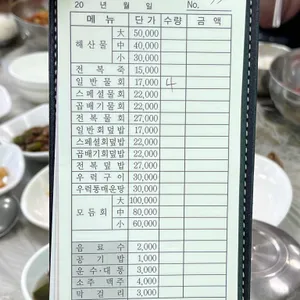 20 년 월 일 No.
메 뉴 단 가 수량 금 액
해산물 大 50,000
中 40,000
小 30,000
전 복 죽 15,000
일 반 물 회 17,000 4
스페셜물회 22,000
곱배기물회 22,000
전 복 물 회 27,000
일반회덮밥 17,000
스페셜회덮밥 22,000
곱배기회덮밥 22,000
전 복 덮 밥 27,000
우 럭 구 이 30,000
우럭통매운탕 30,000
모듬회 大 100,000
中 80,000
小 60,000
음 료 수 2,000
공 기 밥 1,000
소주 맥주 4,000
막 걸 리 3,000